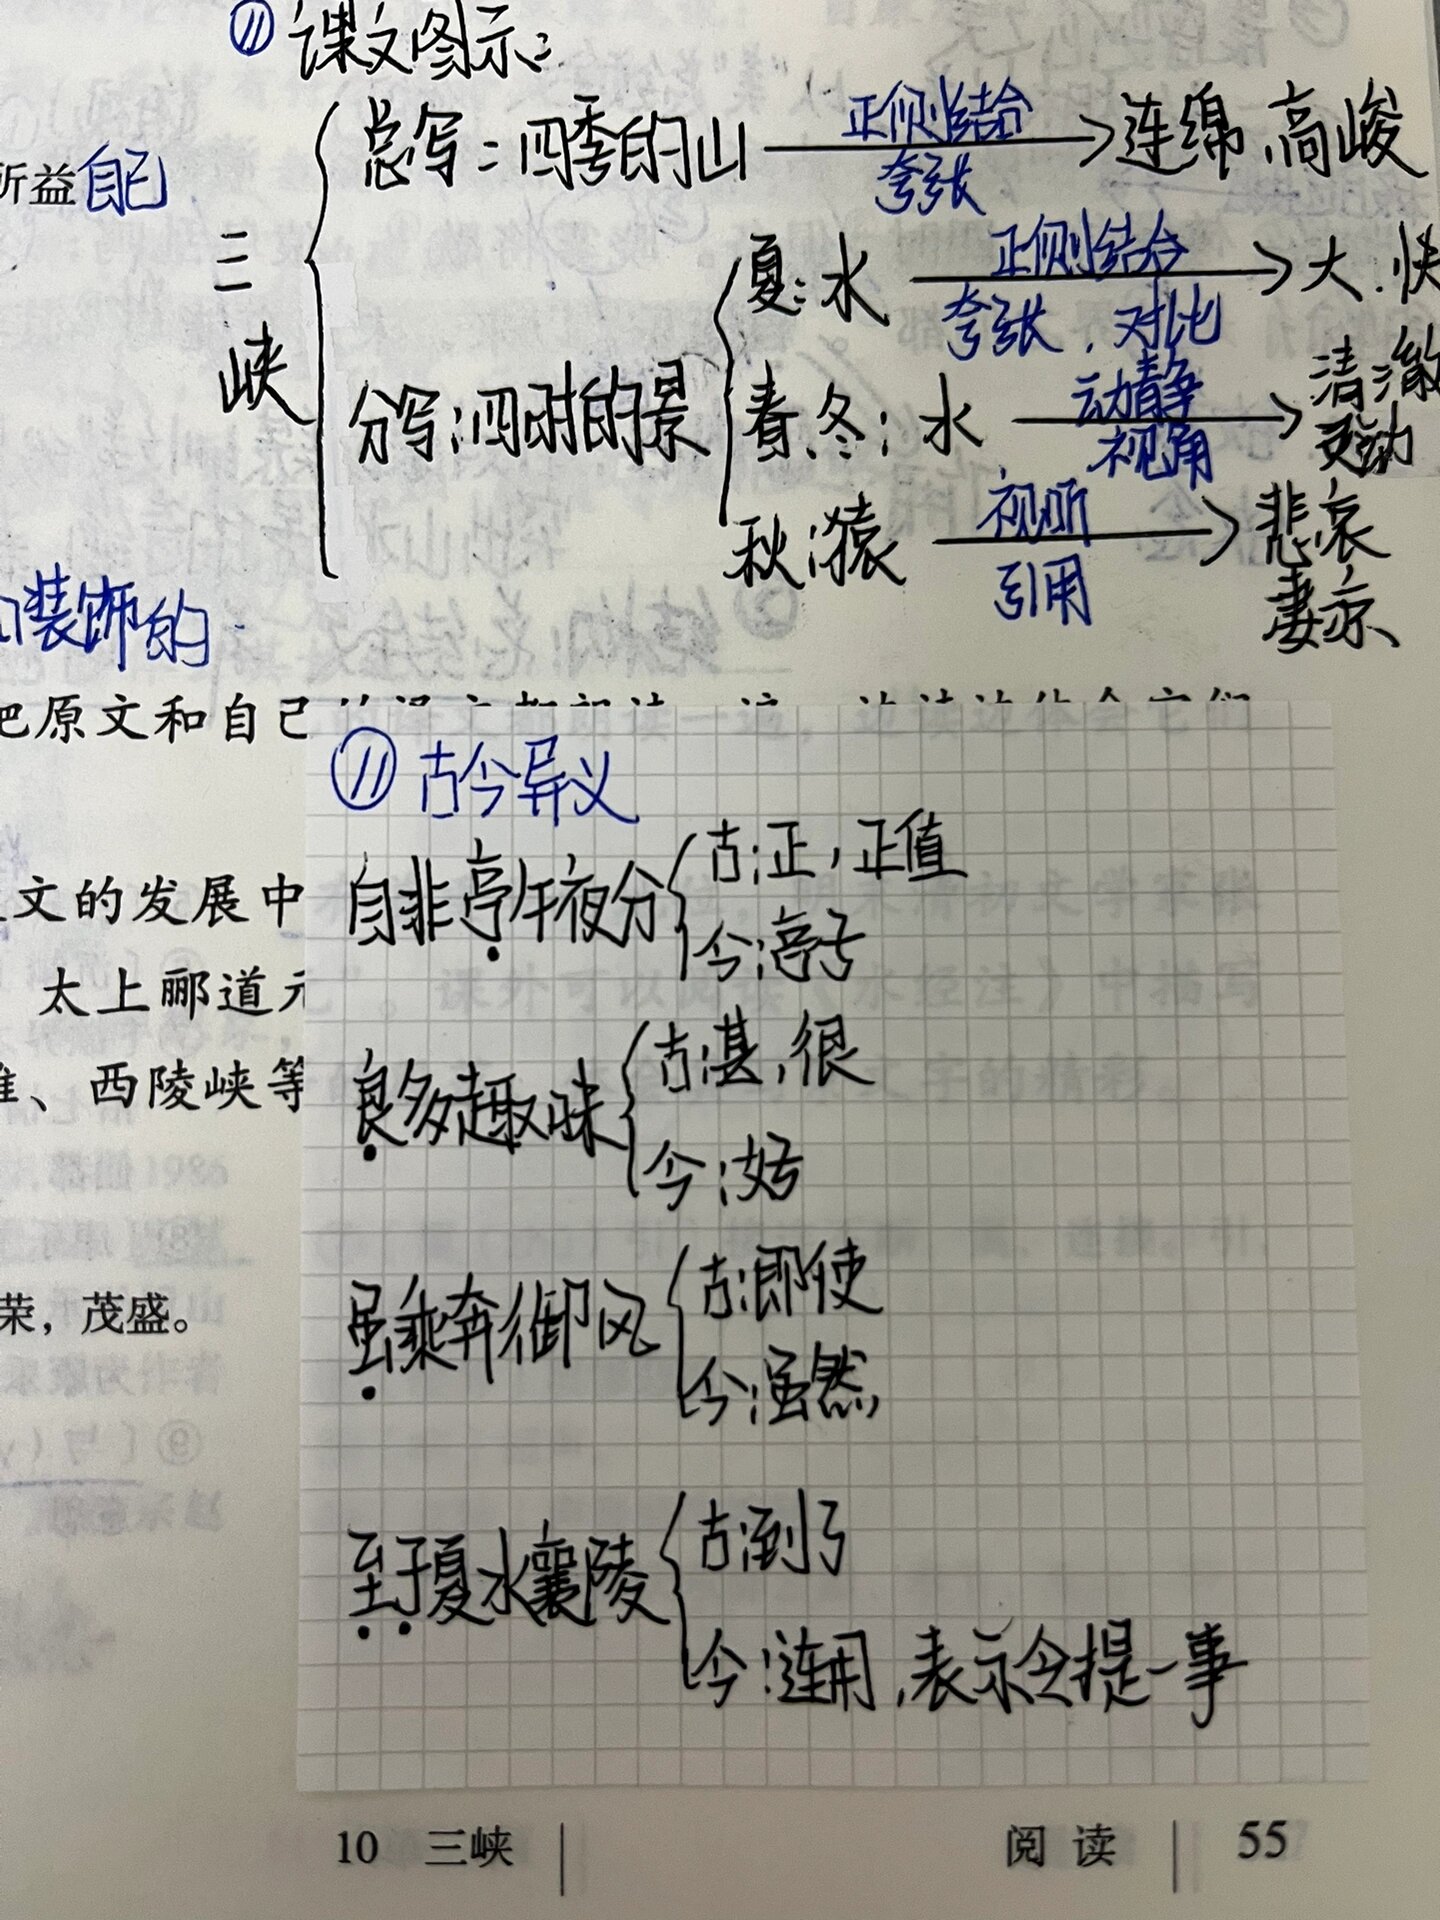 ⑪ 课文图示：
总写：四季的山 正侧结合 夸张 连绵、高峻
所益自己
三峡
夏：水 正侧结合 夸张、对比 大、快
分写：四时的景
春、冬：水 动静 视角 清澈 灵动
秋：猿 视听 引用 悲哀 凄凉
装饰的
把原文和自己
⑪ 古今异义
自非亭午夜分
古：正，正值
今：亭子
文的发展中
太上郦道元
良多趣味
古：甚，很
今：好
、西陵峡等
虽乘奔御风
古：即使
今：虽然
荣，茂盛。
至于夏水襄陵
古：到了
今：连用，表示令提一事
10 三峡
阅读
55